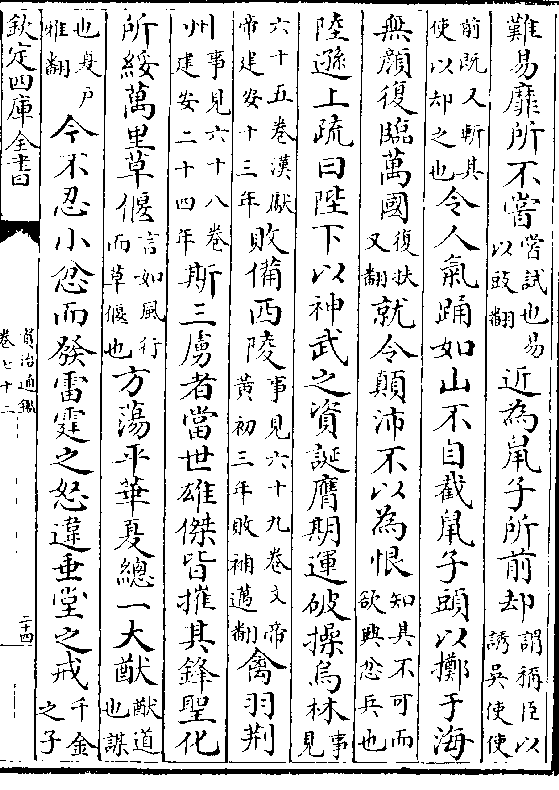 難易靡所不嘗嘗試也易以豉翻近為鼠子所前却謂稱臣以誘吳使使
前既又斬其使以却之也令人氣踊如山不自截鼠子頭以擲于海
無顔復臨萬國復扶又翻就令顛沛不以為恨知其不可而欲興忿兵也
陸遜上疏曰陛下以神武之資誕膺期運破操烏林事見
六十五卷漢獻帝建安十三年敗備西陵事見六十九卷文帝黄初三年敗補邁翻禽羽荆
州事見六十八卷建安二十四年斯三虜者當世雄傑皆摧其鋒聖化
所綏萬里草偃言如風行而草偃也方蕩平華夏總一大猷猷道也謀
也夏户雅翻今不忍小忿而發雷霆之怒違垂堂之戒千金之子
欽定四庫全書
資治通鑑
卷七十二
二十四